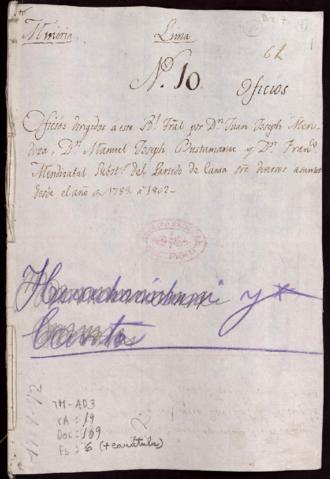 Mineria. Lima
62
N.º 10.
Oficios
Oficios dirigidos a este Rl. Trâl. por Dn. Juan Joseph Men
doza, Dn. Manuel Joseph Bustamante y Dn. Franco.
Mendizabal Subst.s del Partido de Canta sre. diversos asuntos
desde el año de 1789. a 1802.
Huarochirí y
Canta
TM-AD3
CA : 19
Doc: 109
Fs: 6 (+ carátula)